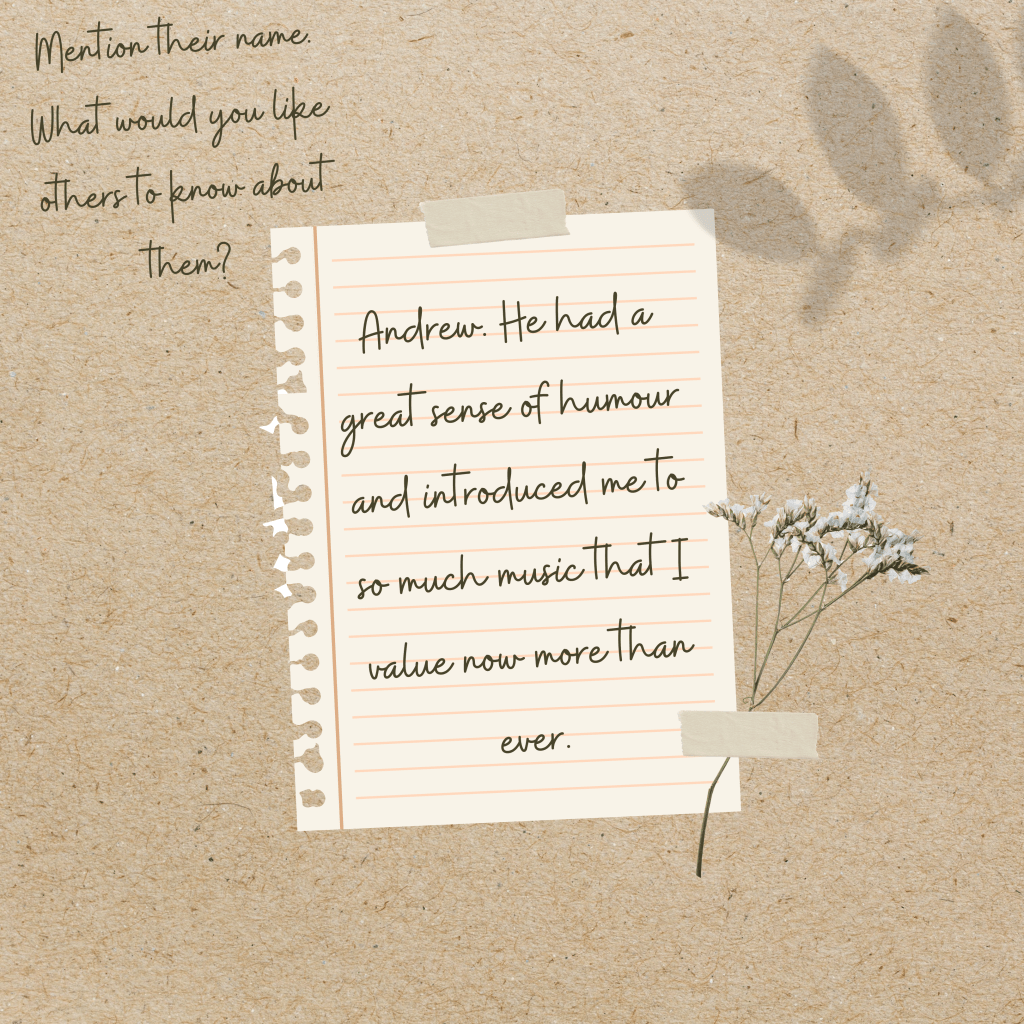 Mention their name.
What would you like
others to know about
them?
Andrew. He had a
great sense of humour
and introduced me to
so much music that I
value now more than
ever.